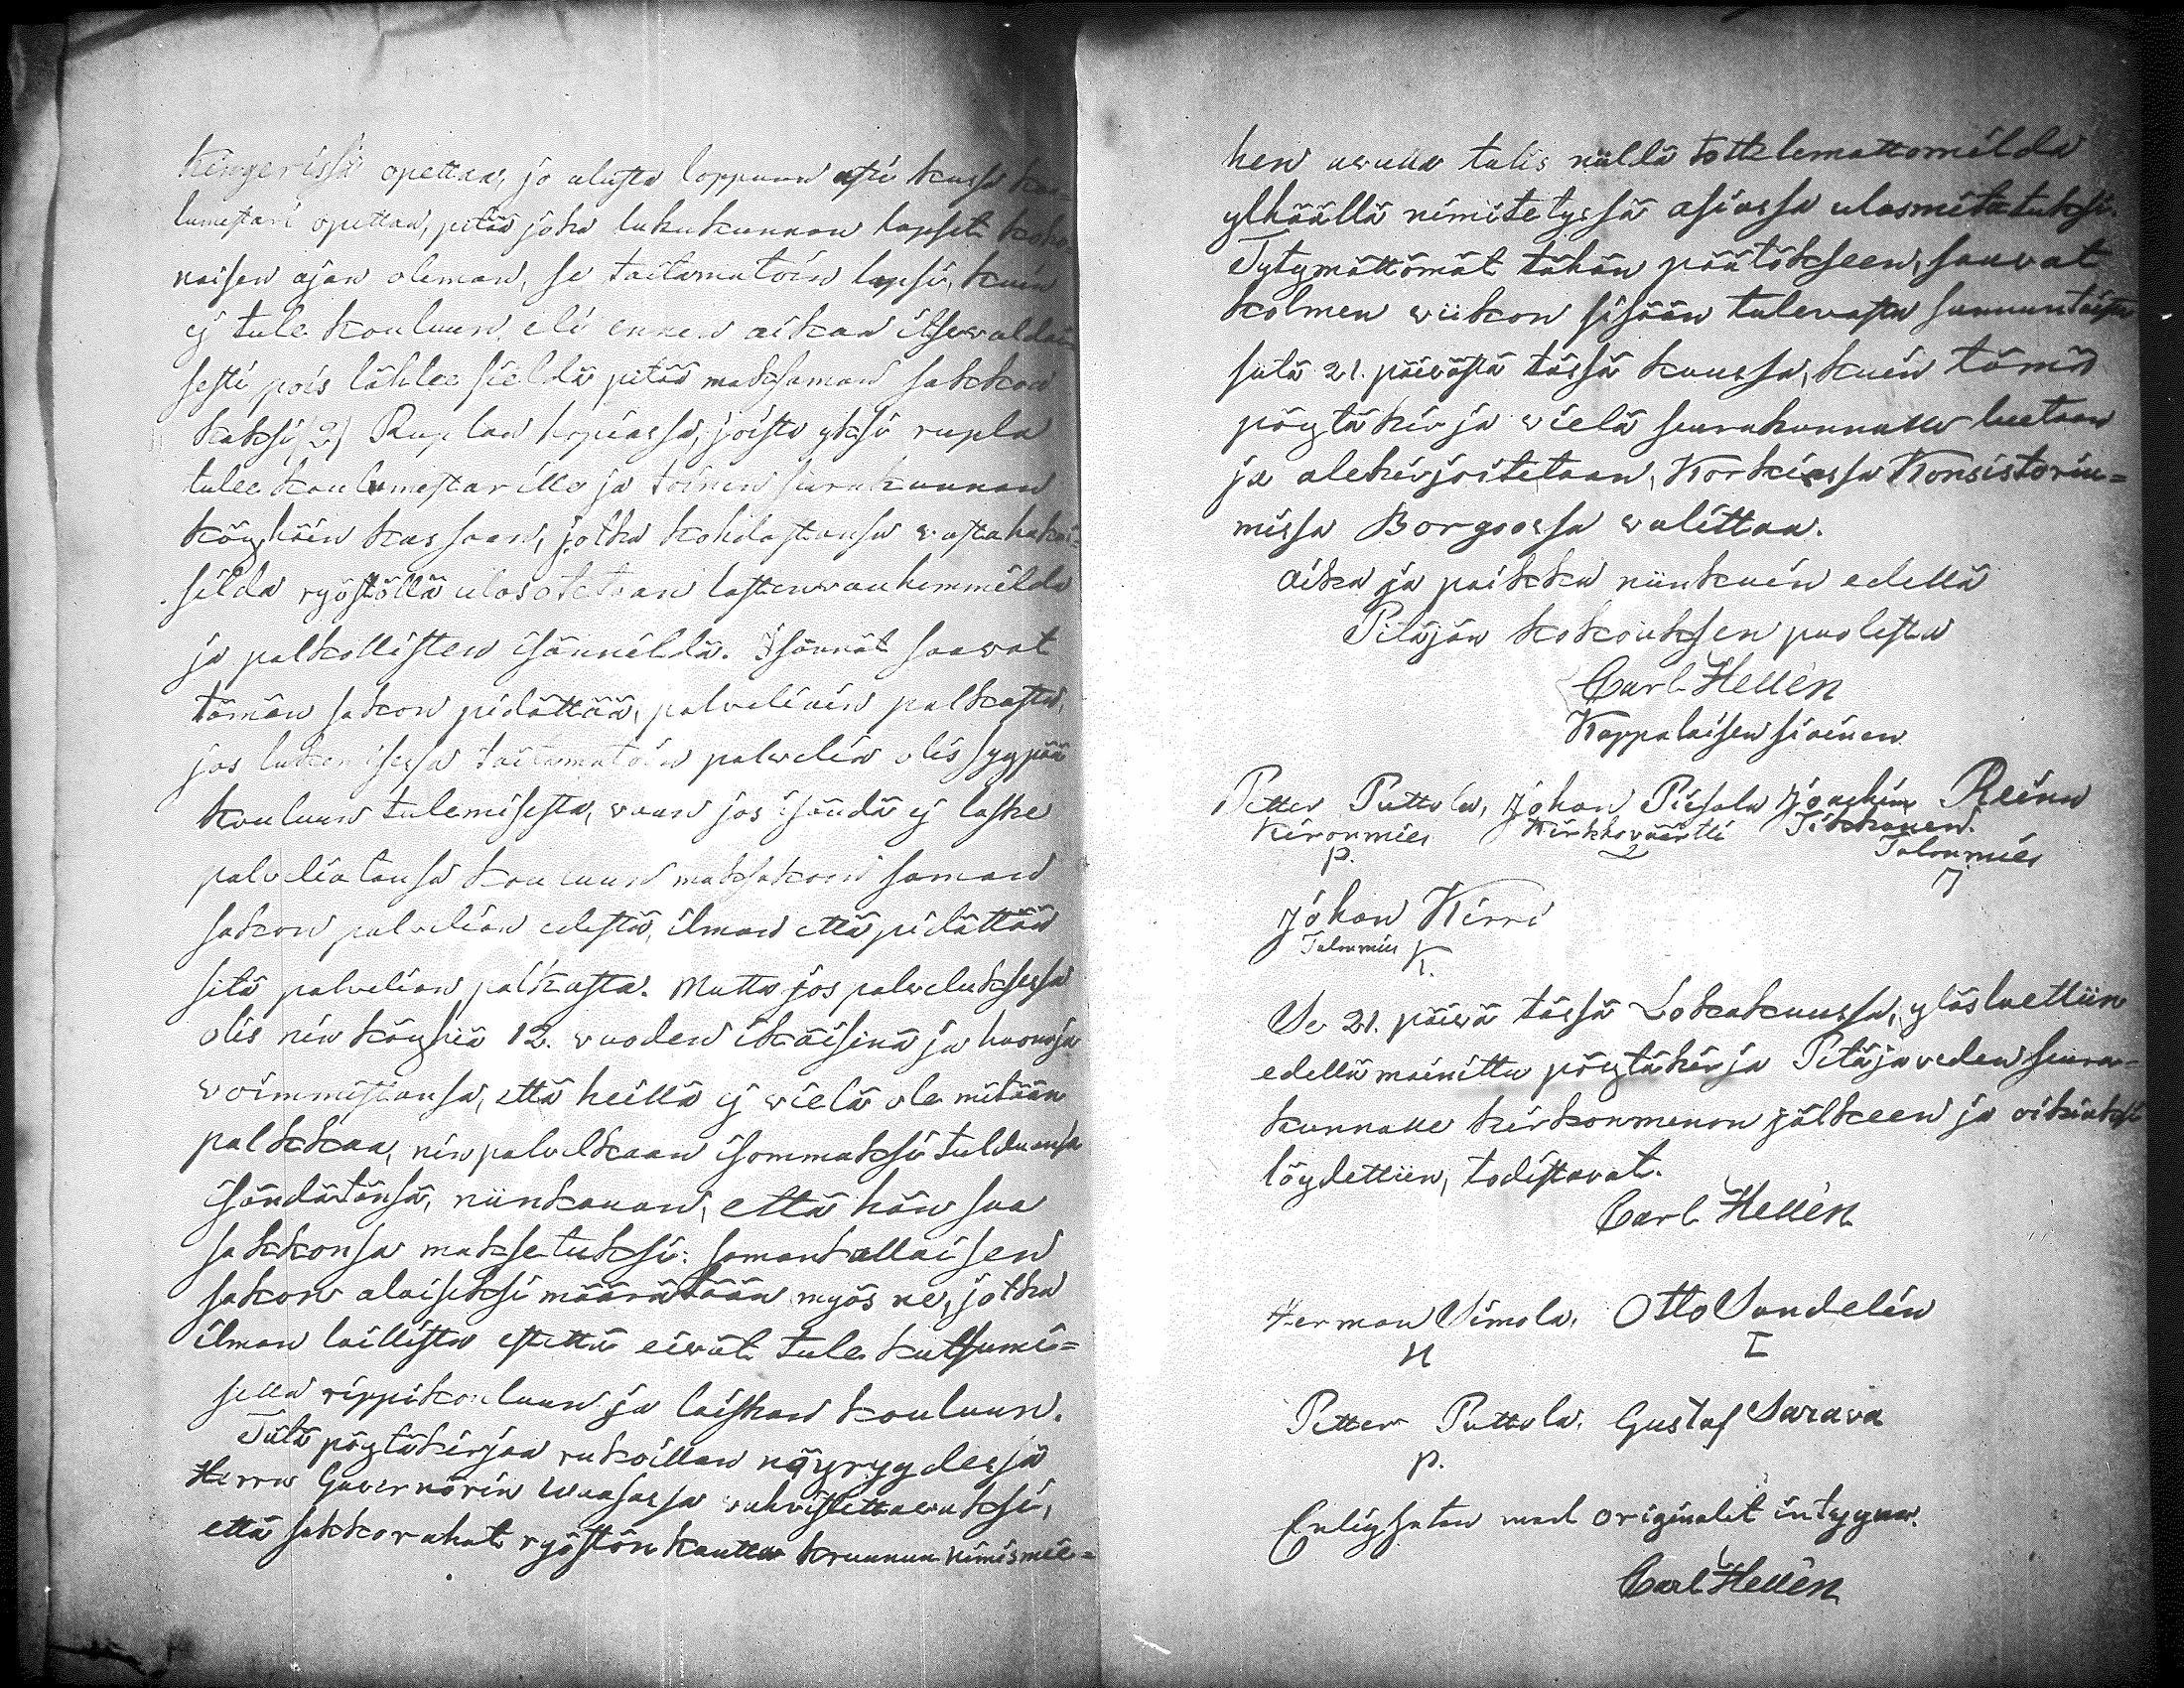 Kingerissä opettaa, jo alusta loppuun asti kussa kou-
lumestari opettaa, pitää joka lukukunnan lapset koko-
naisen ajan oleman, se taitamatoin lapsi, kuin
ej tule kouluun eli ennen aikaa itsevaldai-
sesti pois lähtee sieldä pitää maksaman sakkoa
kaksi (2) Ruplaa hopiassa, joista yksi rupla
tulee koulumestarille ja toinen seurakunnan
köyhäin kassaan, jotka kohdastansa vastahakoi-
silda ryöstöllä ulosotetaan lastenvanhemmilda
ja palkollisten isännildä. Isännät saavat
tämän sakon pidättää, palveliain palkasta,
jos lukemisessa taitamatoin palvelia olis syypää
kouluun tulemisesta, vaan jos isändä ej laske
palveliatansa kouluun maksakoon saman
sakon palvelian edestä, ilman että pidättää
sitä palvelian palkasta. Mutta jos palveluksessa
olis niin köyhiä 12. vuoden ikäisinä ja huonoja
voimmistansa, että heillä ej vielä ole mitään
palkkaa, niin palvelkaan isommaksi tulduansa
isändätänsä, niinkauan, että hän saa
sakkonsa maksetuksi: samankallaisen
sakon alaiseksi määrätään myös ne, jotka
ilman laillista estettä eivät tule kutsumi=
sella rippikouluun ja laiskan kouluun.
Tätä pöytäkirjaa rukoillaan nöyryydessä
Herra Guvernörin Waasassa vahvistettavaksi,
että sakkorahat ryöstön kautta kruunun nimismie=
hen avulla tulis niildä tottelemattomilda
ylhäällä nimitetyssä asiassa ulosmitatuksi.
Tytymättömät tähän päätökseen, saavat
kolmen viikon sisään tulevasta sunnuntaista
siitä 21. päivästä tässä kuussa, kuin tämä
pöytäkirja vielä seurakunnalle luetaan
ja alekirjoitetaan, Korkiassa Konsistoriu=
missa Borgoossa valittaa.
Aika ja paikka niinkuin edellä
Pitäjän kokouksen puolesta
Carl Hellén
Kappalaisen siainen
Petter Puttola, Johan Piesala Joachim Reinu
Kironmies Kirkkoväärtti Tikkanen.
P. Talonmies
J
Johan Kirri
Talonmies K.
Se 21. päivä tässä Lokakuussa, ylösluettiin
edellämainittu pöytäkirja Pitäjäveden seura=
kunnalle kirkonmenon jälkeen ja oikiaksi
löydettiin, todistavat.
Carl Hellén
Herman Simola. Otto Sandelin
H I
Petter Puttola. Gustaf Sarava
P.
Enligheten med originalet intygar.
Carl Hellén